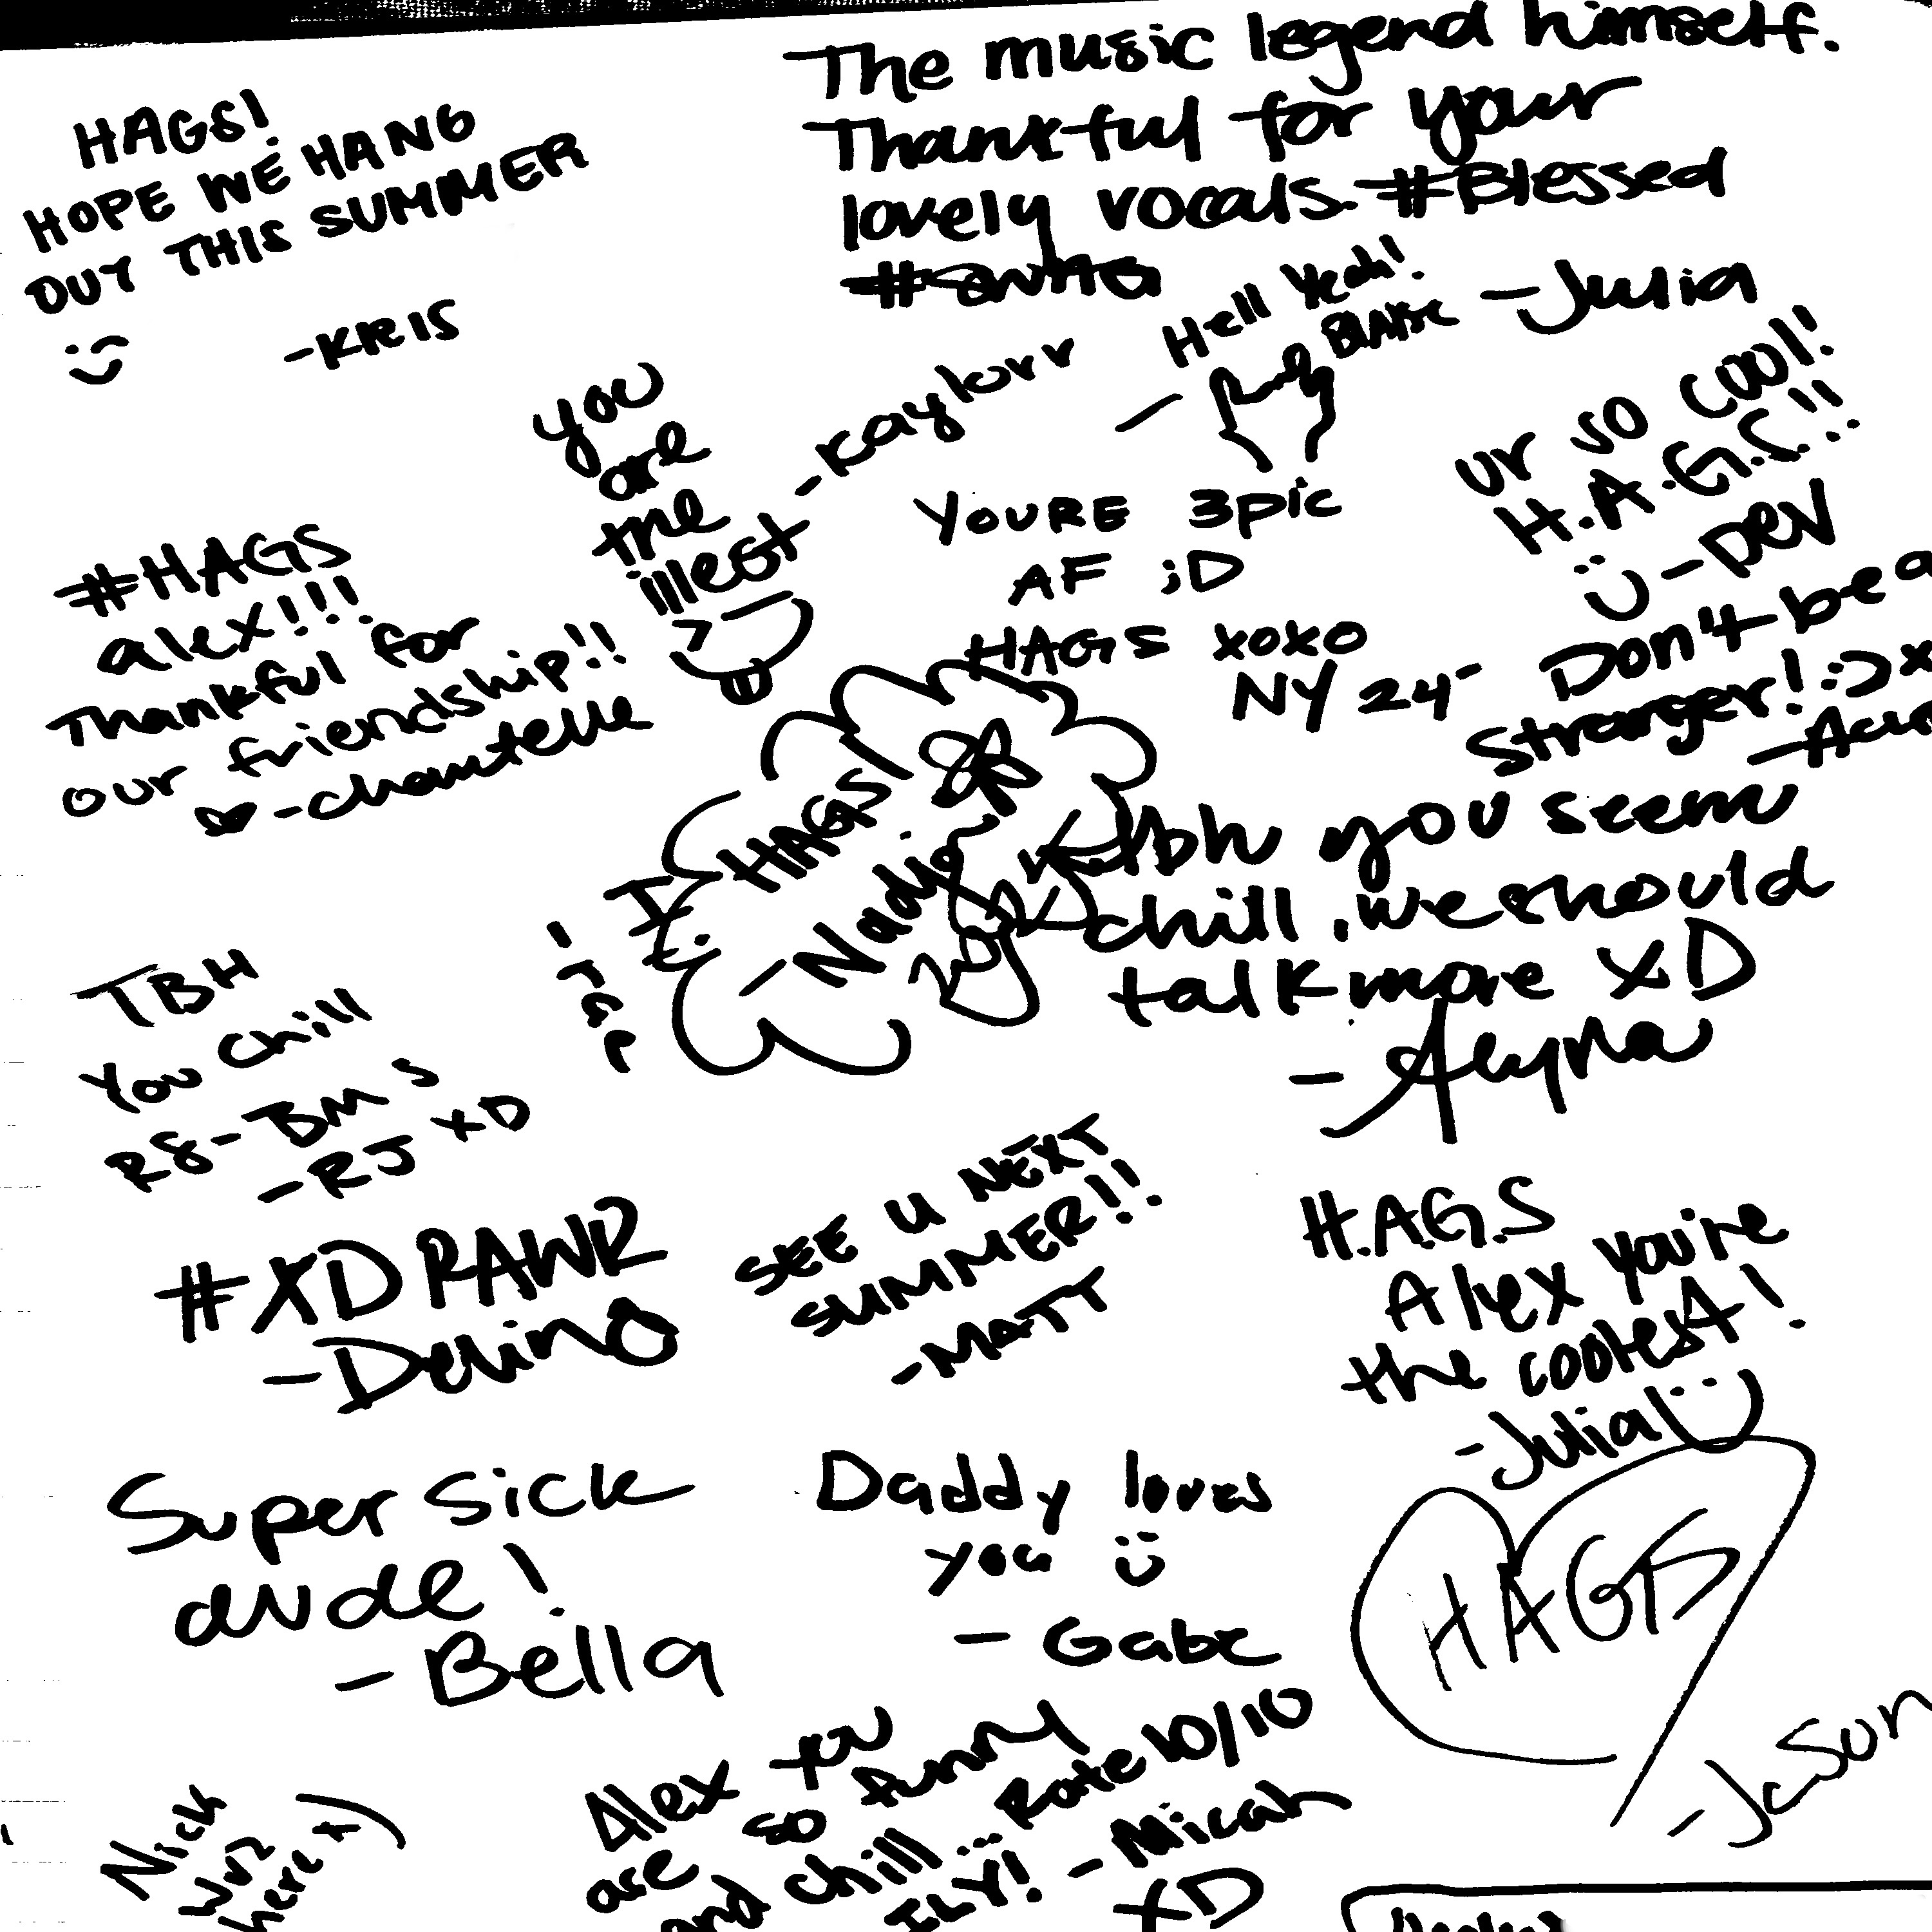 The music legend himself.
Thankful for your
lovely vocals. #Blessed
-Julia
HAGS!
HOPE WE HANG
OUT THIS SUMMER
:)
-KRIS
Hell Yeah!
you
are
the
illest
-kaylorr
UR SO COOL!
H.A.G.S.!!
:) -DEV
YOURE 3pic
AF ;D
HAGS XOXO
NY 24-
#HAGS
alex!!!
Thankful for
our friendship!!
-chantelle
Don't be a
Stranger! :) x
HAGS
-Nadia
tbh you seem
chill. we should
talk more XD
-Alyna
TBH
You chill
R8-BMS
-RJ XD
#XD RAWR
-Delino
SEE U NEXT
SUMMER!!
-MATT
H.A.G.S
Alex you're
the coolest!
-Julia :)
Super sick
dude!
-Bella
Daddy loves
you :)
-Gabe
HAGS
-JaSon
Nick
wuz
here
Alex
are so funny
and chill... Rate 10/10
ILY! -Micah
XD